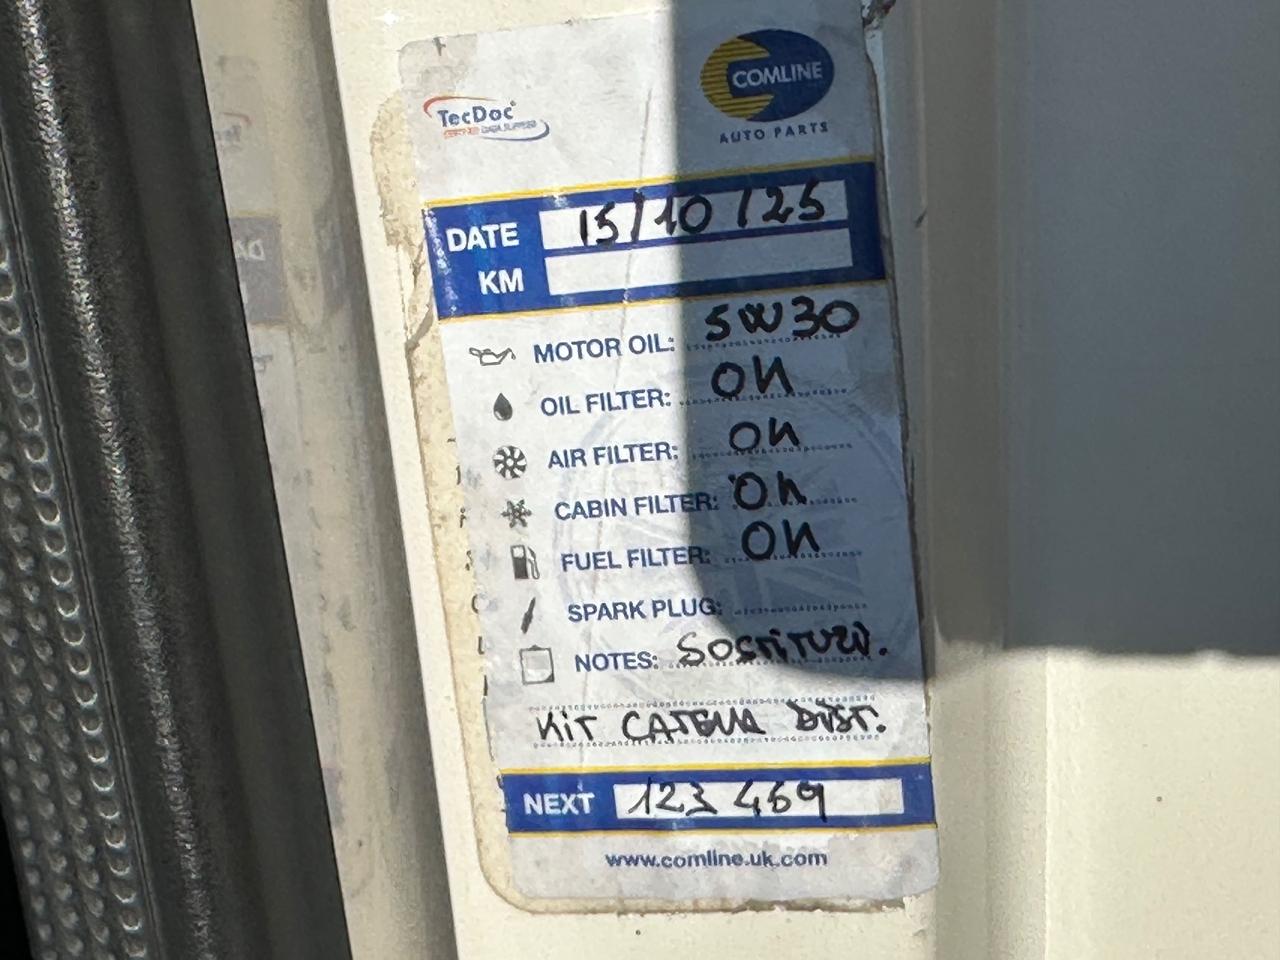 TecDoc
CERTIFIED DATA SUPPLIER
COMLINE
AUTO PARTS
DATE 15/10/25
KM
MOTOR OIL: 5W30
OIL FILTER: OK
AIR FILTER: OK
CABIN FILTER: OK
FUEL FILTER: OK
SPARK PLUG:
NOTES: SOSTITUZ.
KIT CATENA DIST.
NEXT 123 469
www.comline.uk.com